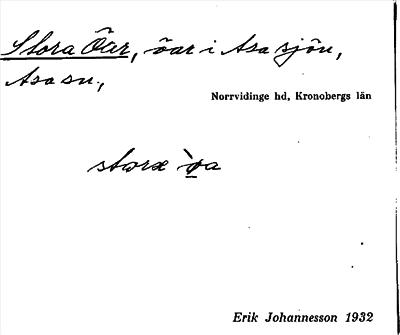 Stora Öar, öar i Asasjön,
Asa sn.,
Norrvidinge hd, Kronobergs län
storæ `o̱a
Erik Johannesson 1932